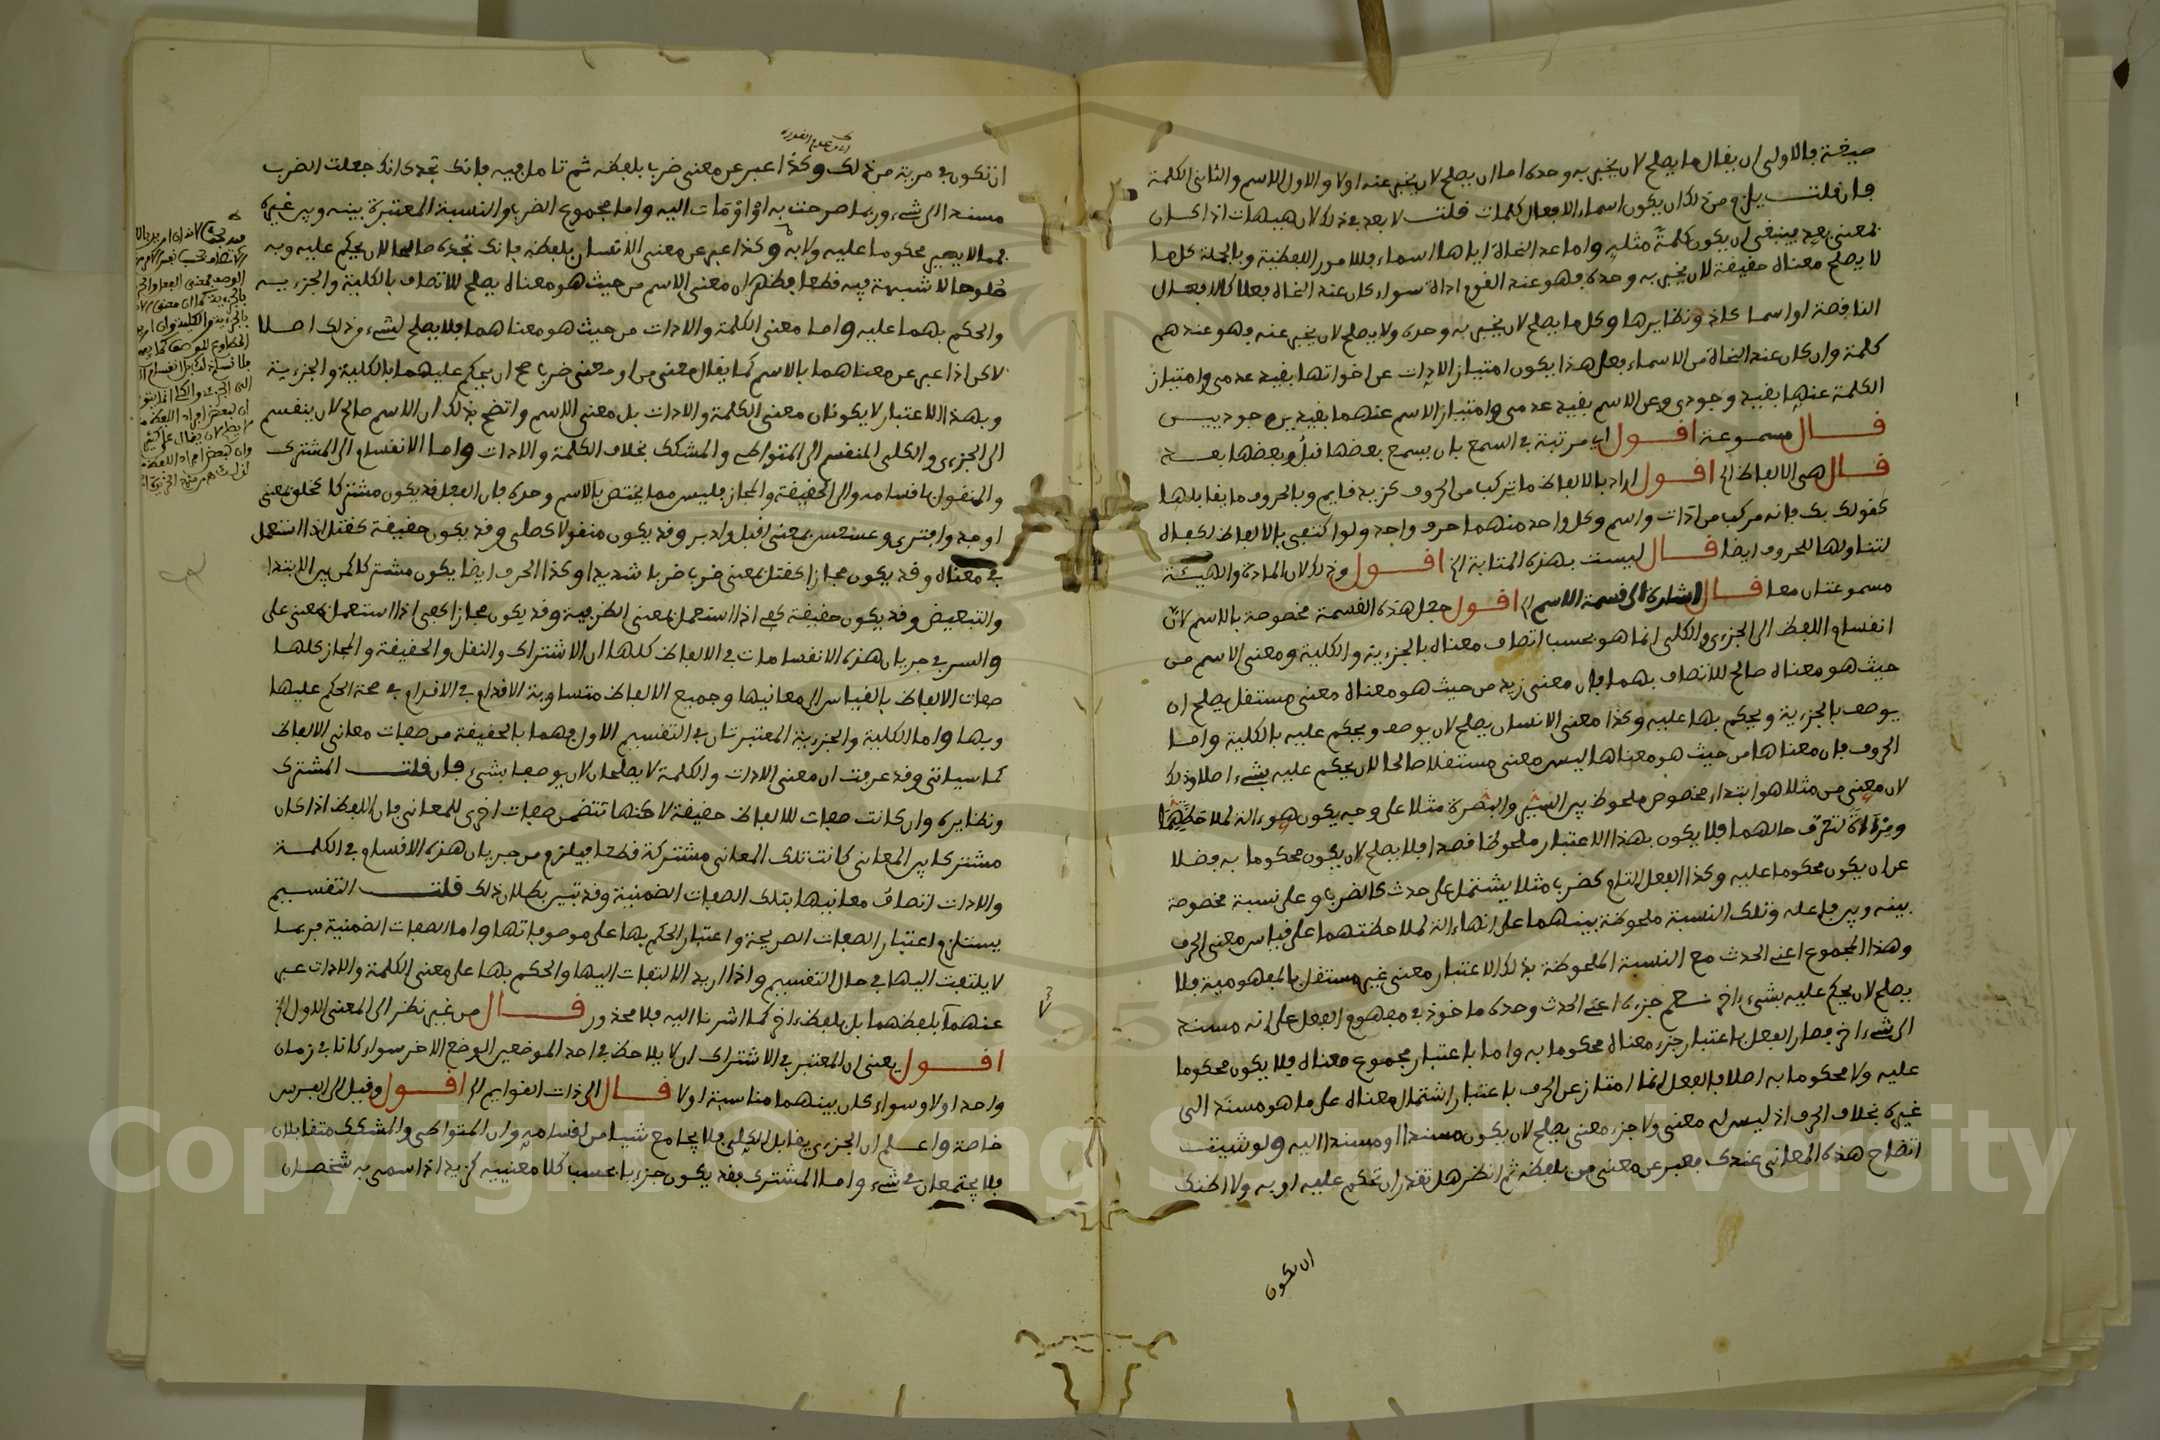 صيغة فالاولى ان يقال ما يصلح لان يخبر به وحده اما ان يصلح لان يخبر عنه اولا والاول الاسم والثانى الكلمة
فان قلت يلزم من ذلك ان يكون اسماء الافعال كلمات قلت لا بعد فى ذلك لان هيهات اذا كان
بمعنى بعد ينبغى ان يكون كلمة مثله واما عد النحاة اياها اسماء فللامور اللفظية وبالجملة كل ما
لا يصلح معناه حقيقة لان يخبر به وحده فهو عند القوم اداة سواء كان عند النحاة فعلا كالافعال
الناقصة او اسما كاذ ونظايرها وكل ما يصلح لان يخبر به وحده ولا يصلح لان يخبر عنه فهو عندهم
كلمة وان كان عند النحاة من الاسماء فعلى هذا يكون امتياز الادات عن اخواتها بقيد عدمى وامتياز
الكلمة عنها بقيد وجودى وعن الاسم بقيد عدمى وامتياز الاسم عنهما بقيدين وجوديين
قال مسموعة اقول اى مرتبة فى السمع بان يسمع بعضها قبل وبعضها بعد
قال هى الالفاظ الخ اقول اراد بالالفاظ ما تركب من الحروف كزيد قايم وبالحروف ما يقابلها
كقولك بك فانه مركب من ادات واسم وكل واحد منهما حرف واحد ولو اكتفى بالالفاظ لكفاه
لتناولها للحروف ايضا قال ليست بهذه المثابة الخ اقول وذلك لان المادة والهيئة
مسموعتان معا قال اشارة الى قسمة الاسم الخ اقول جعل هذه القسمة مخصوصة بالاسم لان
انقسام اللفظ الى الجزءى والكلى انما هو بحسب اتصاف معناه بالجزءية والكلية ومعنى الاسم من
حيث هو معناه صالح للاتصاف بهما فان معنى زيد من حيث هو معناه معنى مستقل يصلح ان
يوصف بالجزءية ويحكم بها عليه وكذا معنى الانسان يصلح لان يوصف ويحكم عليه بالكلية واما
الحروف فان معناها من حيث هو معناها ليس معنى مستقلا صالحا لان يحكم عليه بشىء اصلا وذلك
لان معنى من مثلا هو ابتداء مخصوص ملحوظ بين السير والبصرة مثلا على وجه يكون هو ءالة لملاحظتهما
ومرءاة لتعرف حالهما فلا يكون بهذا الاعتبار ملحوظا قصدا فلا يصلح لان يكون محكوما به فضلا
عن ان يكون محكوما عليه وكذا الفعل التام كضرب مثلا يشتمل على حدث كالضرب وعلى نسبة مخصوصة
بينه وبين فاعله وتلك النسبة ملحوظة بينهما على انها ءالة لملاحظتهما على قياس معنى الحرف
وهذا المجموع اعنى الحدث مع النسبة الملحوظة بذلك الاعتبار معنى غير مستقل بالمفهومية فلا
يصلح لان يحكم عليه بشىء اخر نعم جزءه اعنى الحدث وحده ماخوذ فى مفهوم الفعل على انه مسند
الى شىء اخر فصار الفعل باعتبار جزء معناه محكوما به واما باعتبار مجموع معناه فلا يكون محكوما
عليه ولا محكوما به اصلا فالفعل انما امتاز عن الحرف باعتبار اشتمال معناه على ما هو مسند الى
غيره بخلاف الحرف اذ ليس له معنى ولا جزء معنى يصلح لان يكون مسندا او مسندا اليه ولو شيت
اتضاح هذه المعانى عندك فعبر عن معنى من بلفظه ثم انظر هل تقدر ان تحكم عليه او به ولا اظنك
ان تكون
ان تكون فى مرية من ذلك وكذا عبر عن معنى ضرب بلفظه ثم تامل فيه فانك تجدك انك جعلت الضرب
مسندا الى شىء وربما صرحت به او اومات اليه واما مجموع الضرب والنسبة المعتبرة بينه وبين غيره
فمما لا يصير محكوما عليه ولا به وكذا عبر عن معنى الانسان بلفظه فانك تجده صالحا لان يحكم عليه وبه
خلوصا لا شبهة فيه قطعا فظهر ان معنى الاسم من حيث هو معناه يصلح للاتصاف بالكلية والجزءية
والحكم بهما عليه واما معنى الكلمة والادات من حيث هو معناهما فلا يصلح لشىء من ذلك اصلا
لاكن اذا عبر عن معناهما بالاسم كما يقال معنى من او معنى ضرب صح ان يحكم عليهما بالكلية والجزءية
وبهذا الاعتبار لا يكونان معنى الكلمة والادات بل معنى الاسم واتضح بذلك ان الاسم صالح لان ينقسم
الى الجزءى والكلى المنقسم الى المتواطى والمشكك بخلاف الكلمة والادات واما الانقسام الى المشترك
والمنقول باقسامه والى الحقيقة والمجاز فليس مما يختص بالاسم وحده فان الفعل قد يكون مشتركا كخلق بمعنى
اوجد وافترى وعسعس بمعنى اقبل وادبر وقد يكون منقولا كصلى وقد يكون حقيقة كقتل اذا استعمل
فى معناه وقد يكون مجازا كقتل بمعنى ضرب ضربا شديدا وكذا الحرف ايضا يكون مشتركا كمن بين الابتدا
والتبعيض وقد يكون حقيقة كفى اذا استعمل بمعنى الظرفية وقد يكون مجازا كفى اذا استعمل بمعنى على
والسر فى جريان هذه الانقسامات فى الالفاظ كلها ان الاشتراك والنقل والحقيقة والمجاز كلها
صفات الالفاظ بالقياس الى معانيها وجميع الالفاظ متساوية الاقدام فى صحة الحكم عليها
وبها واما الكلية والجزءية المعتبرتان فى التقسيم الاول فهما بالحقيقة من صفات معانى الالفاظ
كما سياتى وقد عرفت ان معنى الادات والكلمة لا يصلحان لان يوصفا بشىء فان قلت المشترك
ونظايره وان كانت صفات للالفاظ حقيقة لاكنها تتضمن صفات اخرى للمعانى فان اللفظ اذا كان
مشتركا بين المعانى كانت تلك المعانى مشتركة قطعا فيلزم من جريان هذه الاقسام فى الكلمة
والادات اتصاف معانيها بتلك الصفات الضمنية وقد تبين بطلان ذلك قلت التقسيم
يستلزم اعتبار الصفات الصريحة واعتبار الحكم بها على موصوفاتها واما الصفات الضمنية فربما
لا يلتفت اليها فى حال التقسيم واذا اريد الالتفات اليها والحكم بها على معنى الكلمة والادات عبر
عنهما لا بلفظهما بل بلفظ ءاخر كما اشرنا اليه فلا محذور قال من غير نظر الى المعنى الاول الخ
اقول يعنى ان المعتبر فى الاشتراك ان لا يلاحظ فى احد الموضعين الوضع الاخر سواء كانا فى زمان
واحد اولا وسواء كان بينهما مناسبة اولا قال الى ذات القوايم الخ اقول وقيل الى الفرس
خاصة واعلم ان الجزءى يقابل الكلى فلا يجامع شيا من اقسامه وان المتواطى والمشكك متقابلان
فلا يجتمعان فى شىء واما المشترك فقد يكون جزءيا بحسب كلا معنييه كزيد اذا سمى به شخصان
Copyright © King Saud University